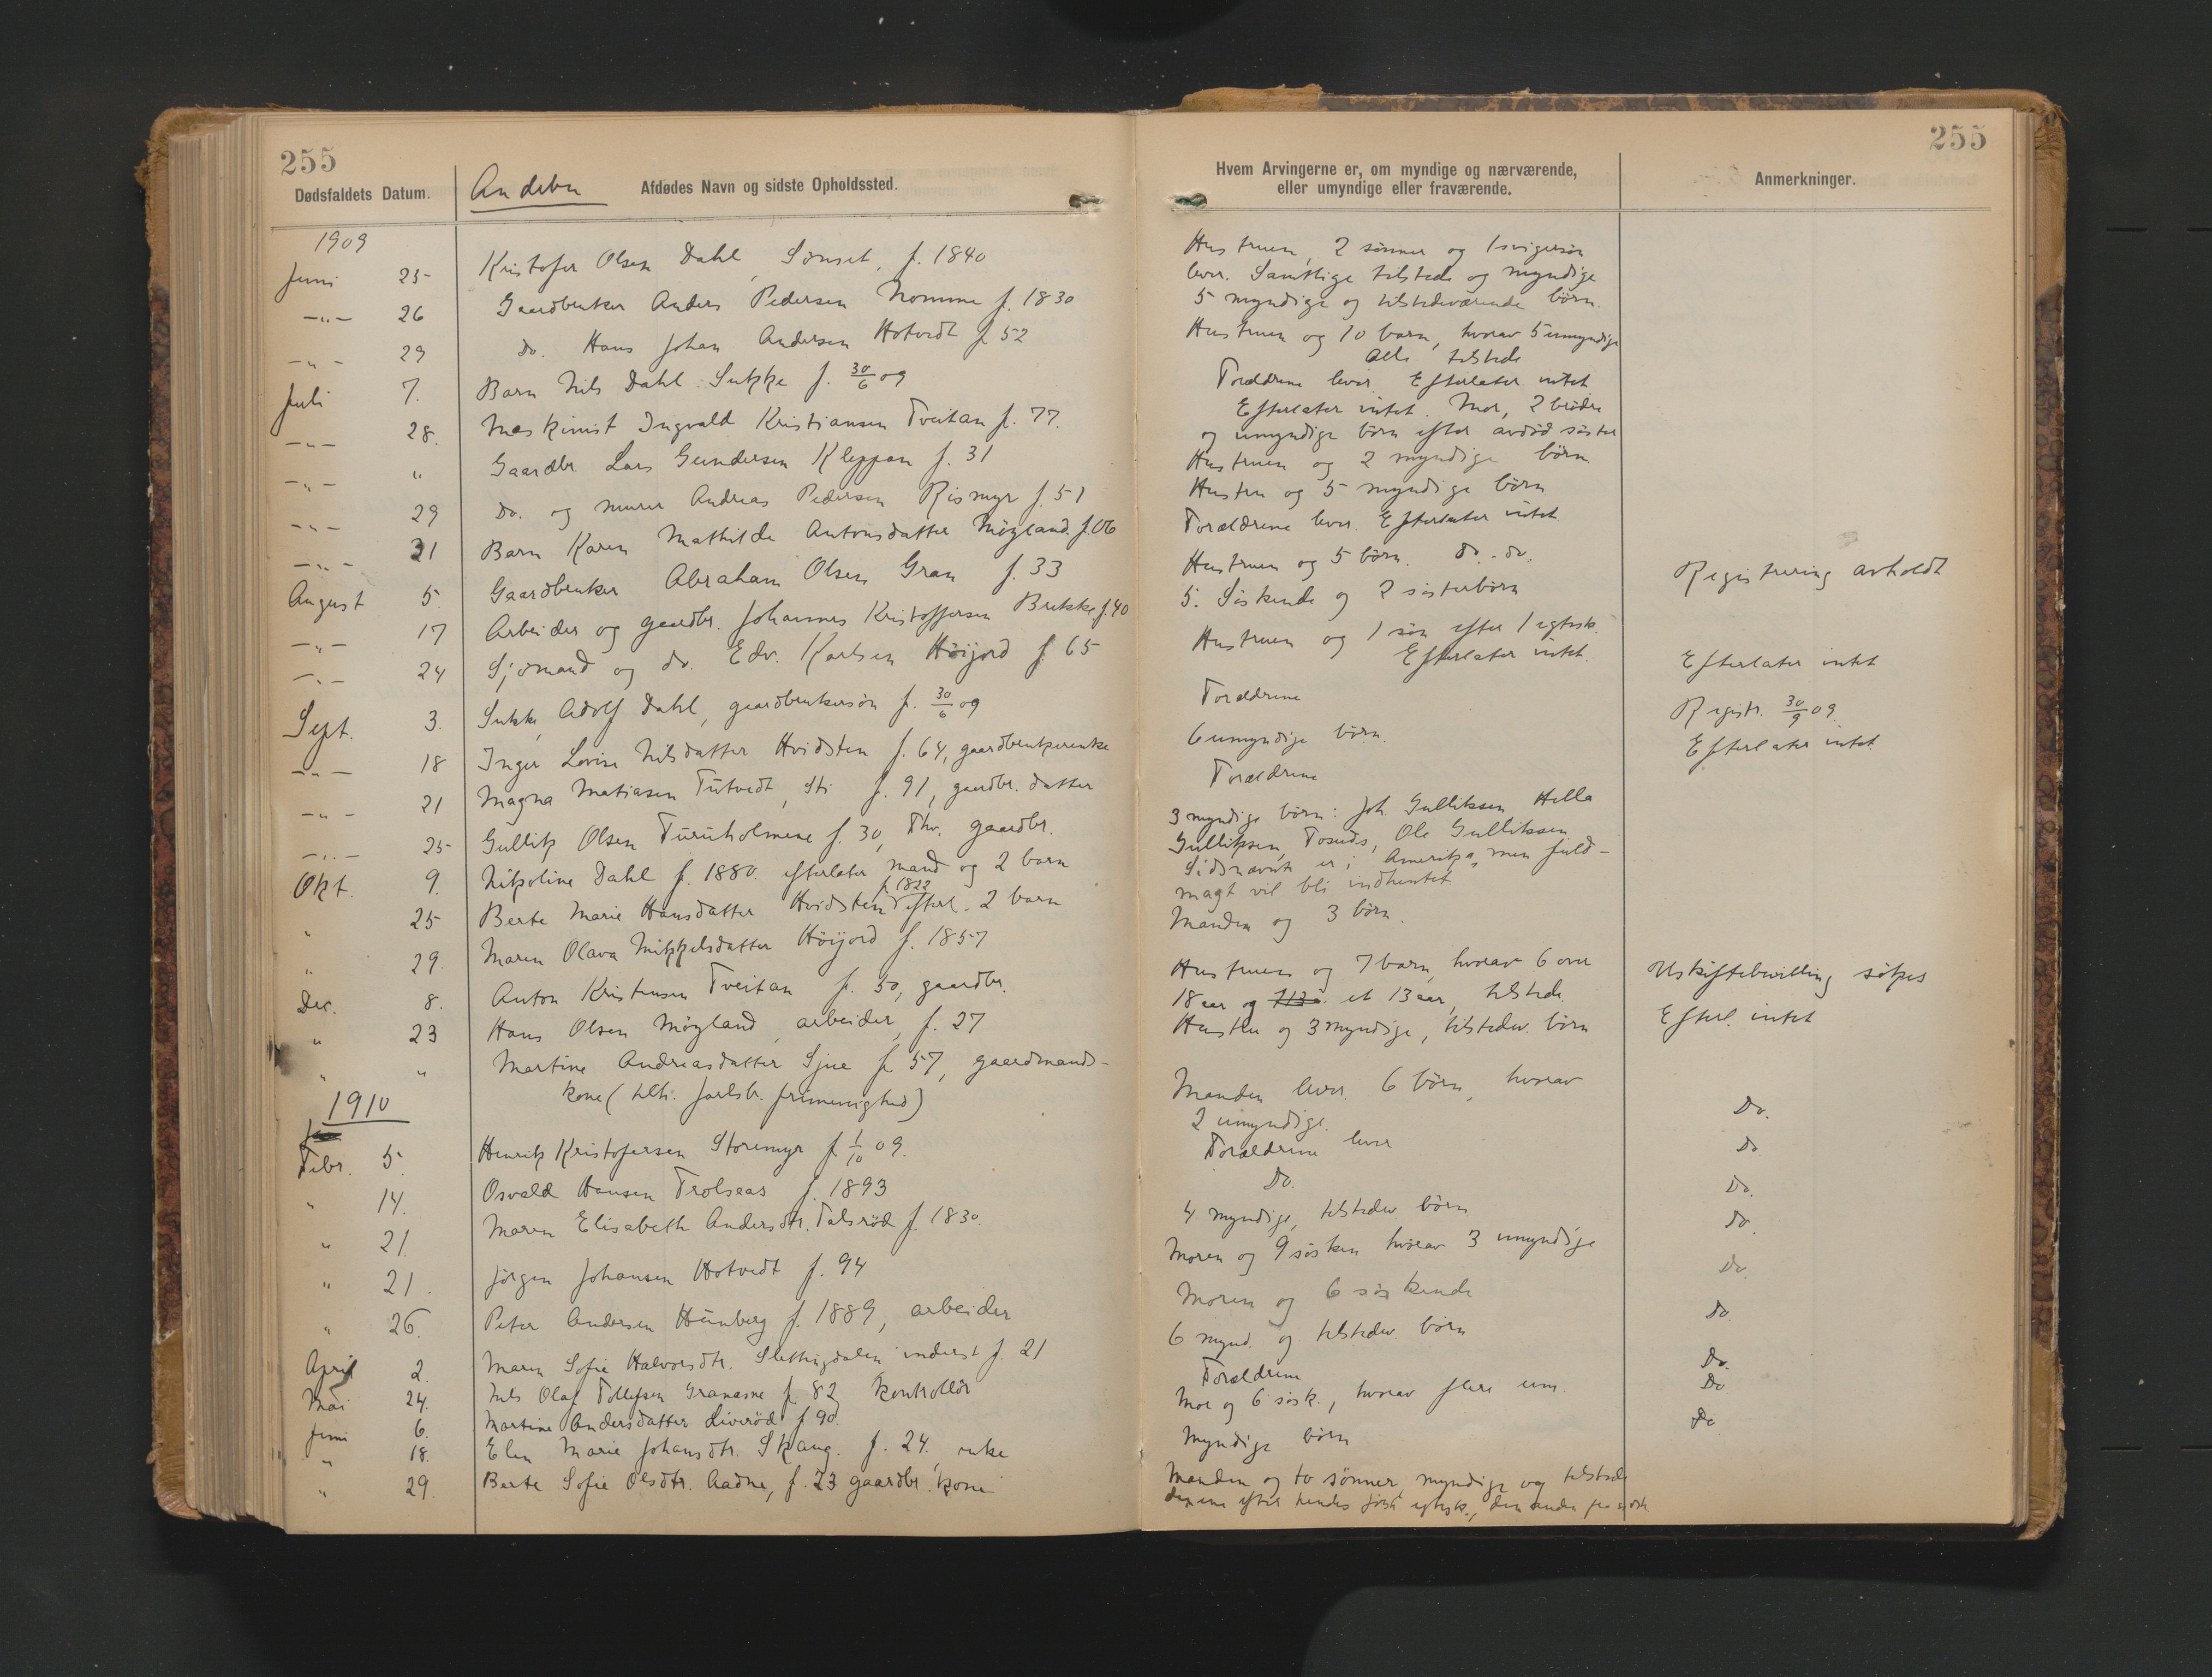 255
Dødsfaldets Datum.
Andebu
Afdødes Navn og sidste Opholdssted.
1909
Juni 25 Kristofer Olsen Dahl, Sønset, f. 1840
-"- 26 Gaardbruker Anders Pedersen Nomme f. 1830
-"- 29 do. Hans Johan Andersen Hotvedt f. 52
Juli 7. Barn Nils Dahl Sukke f. 30/6 09
-"- 28. Maskinist Ingvald Kristiansen Tveitan f. 77.
-"- " Gaardbr. Lars Gundersen Kleppan f. 31
-"- 29 do. og murer Andreas Pedersen Rismyr f. 51
-"- 31 Barn Karen Mathilde Antonsdatter Møyland. f. 06
August 5. Gaardbruker Abraham Olsen Gran f. 33
-"- 17 Arbeider og gaardbr. Johannes Kristoffersen Brekke f. 40
-"- 24 Sjømand og do. Edv. Karlsen Høijord f. 65
Sept. 3. Sukke, Adolf Dahl, gaardbrukersøn f. 30/6 09
-"- 18 Inger Lovise Nilsdatter Hvidsten f. 64, gaardbrukerenke
-"- 21 Magna Matiasen Tutvedt, Sti f. 91, gaardbr. datter
-"- 25 Gullik Olsen Furuholmene f. 30, fhv. gaardbr.
Okt. 9. Nikoline Dahl f. 1880. efterlater mand og 2 barn
f. 1822
" 25 Berte Marie Hansdatter Hvidsten efterl. 2 barn
" 29. Maren Olava Mikkelsdatter Høijord f. 1857
Dec. 8. Anton Kristensen Tveitan f. 50, gaardbr.
" 23 Hans Olsen Møyland, arbeider, f. 27
" " Martine Andreasdatter Sjue f. 57, gaardmands-
kone (tilh. Jarlsb. frimenighed)
1910
Febr. 5. Henrik Kristofersen Storemyr f. 1/10 09.
" 14. Osvald Hansen Trolsaas f. 1893
" 21. Maren Elisabeth Andersdtr. Talsrød f. 1830.
" 21. Jørgen Johansen Hotvedt f. 94
" 26. Peter Andersen Hunberg f. 1889, arbeider
April 2. Maren Sofie Halvorsdtr. Slettingdalen inderst f. 21
Mai 24. Nils Olaf Tollefsen Granasne f. 82, kontrollør
Juni 6. Martine Andersdatter Liverød f. 90.
" 18. Elen Marie Johansdtr. Skaug. f. 24, enke
" 29. Berte Sofie Olsdtr. Aadne, f. 23 gaardbr. kone
255
Hvem Arvingerne er, om myndige og nærværende,
eller umyndige eller fraværende.
Anmerkninger.
Hustruen, 2 sønner og 1 svigersøn
lever. Samtlige tilstede og myndige
5 myndige og tilstedeværende børn.
Hustruen og 10 barn, hvorav 5 umyndige
alle tilstede
Forældrene lever. Efterlater intet
Efterlater intet. Mor, 2 brødre
og umyndige børn efter avdød søster
Hustruen og 2 myndige børn
Hustru og 5 myndige børn
Forældrene lever. Efterlater intet
Hustruen og 5 børn. do. do. Registrering avholdt
5. Søskende og 2 søsterbørn
Hustruen og 1 søn efter 1 egtesk.
Efterlater intet. Efterlater intet
Forældrene Registr. 30/9 09.
6 umyndige børn. Efterlater intet
Forældrene
3 myndige børn: Joh. Gulliksen Hella
Gulliksen, Ole Gulliksen.
Sidstnævnte er i Amerika, men fuld-
magt vil bli indhentet
Manden og 3 børn.
Hustruen og 7 barn, hvorav 6 over Uskiftebevilling søkes
18 aar og et 13 aar, tilstede.
Hustru og 3 myndige, tilstedev. børn Efterl. intet
Manden lever. 6 børn, hvorav Do.
2 umyndige.
Forældrene lever Do
Do. Do.
4 myndige, tilstedev børn Do.
Moren og 9 søsken hvorav 3 umyndige Do.
Moren og 6 søskende Do.
6 mynd. og tilstedev. børn Do.
Forældrene Do
Mor og 6 søsk., hvorav flere um. Do
Myndige børn
Manden og to sønner, myndige og tilstede
den ene efter hendes første egtesk., den anden fra